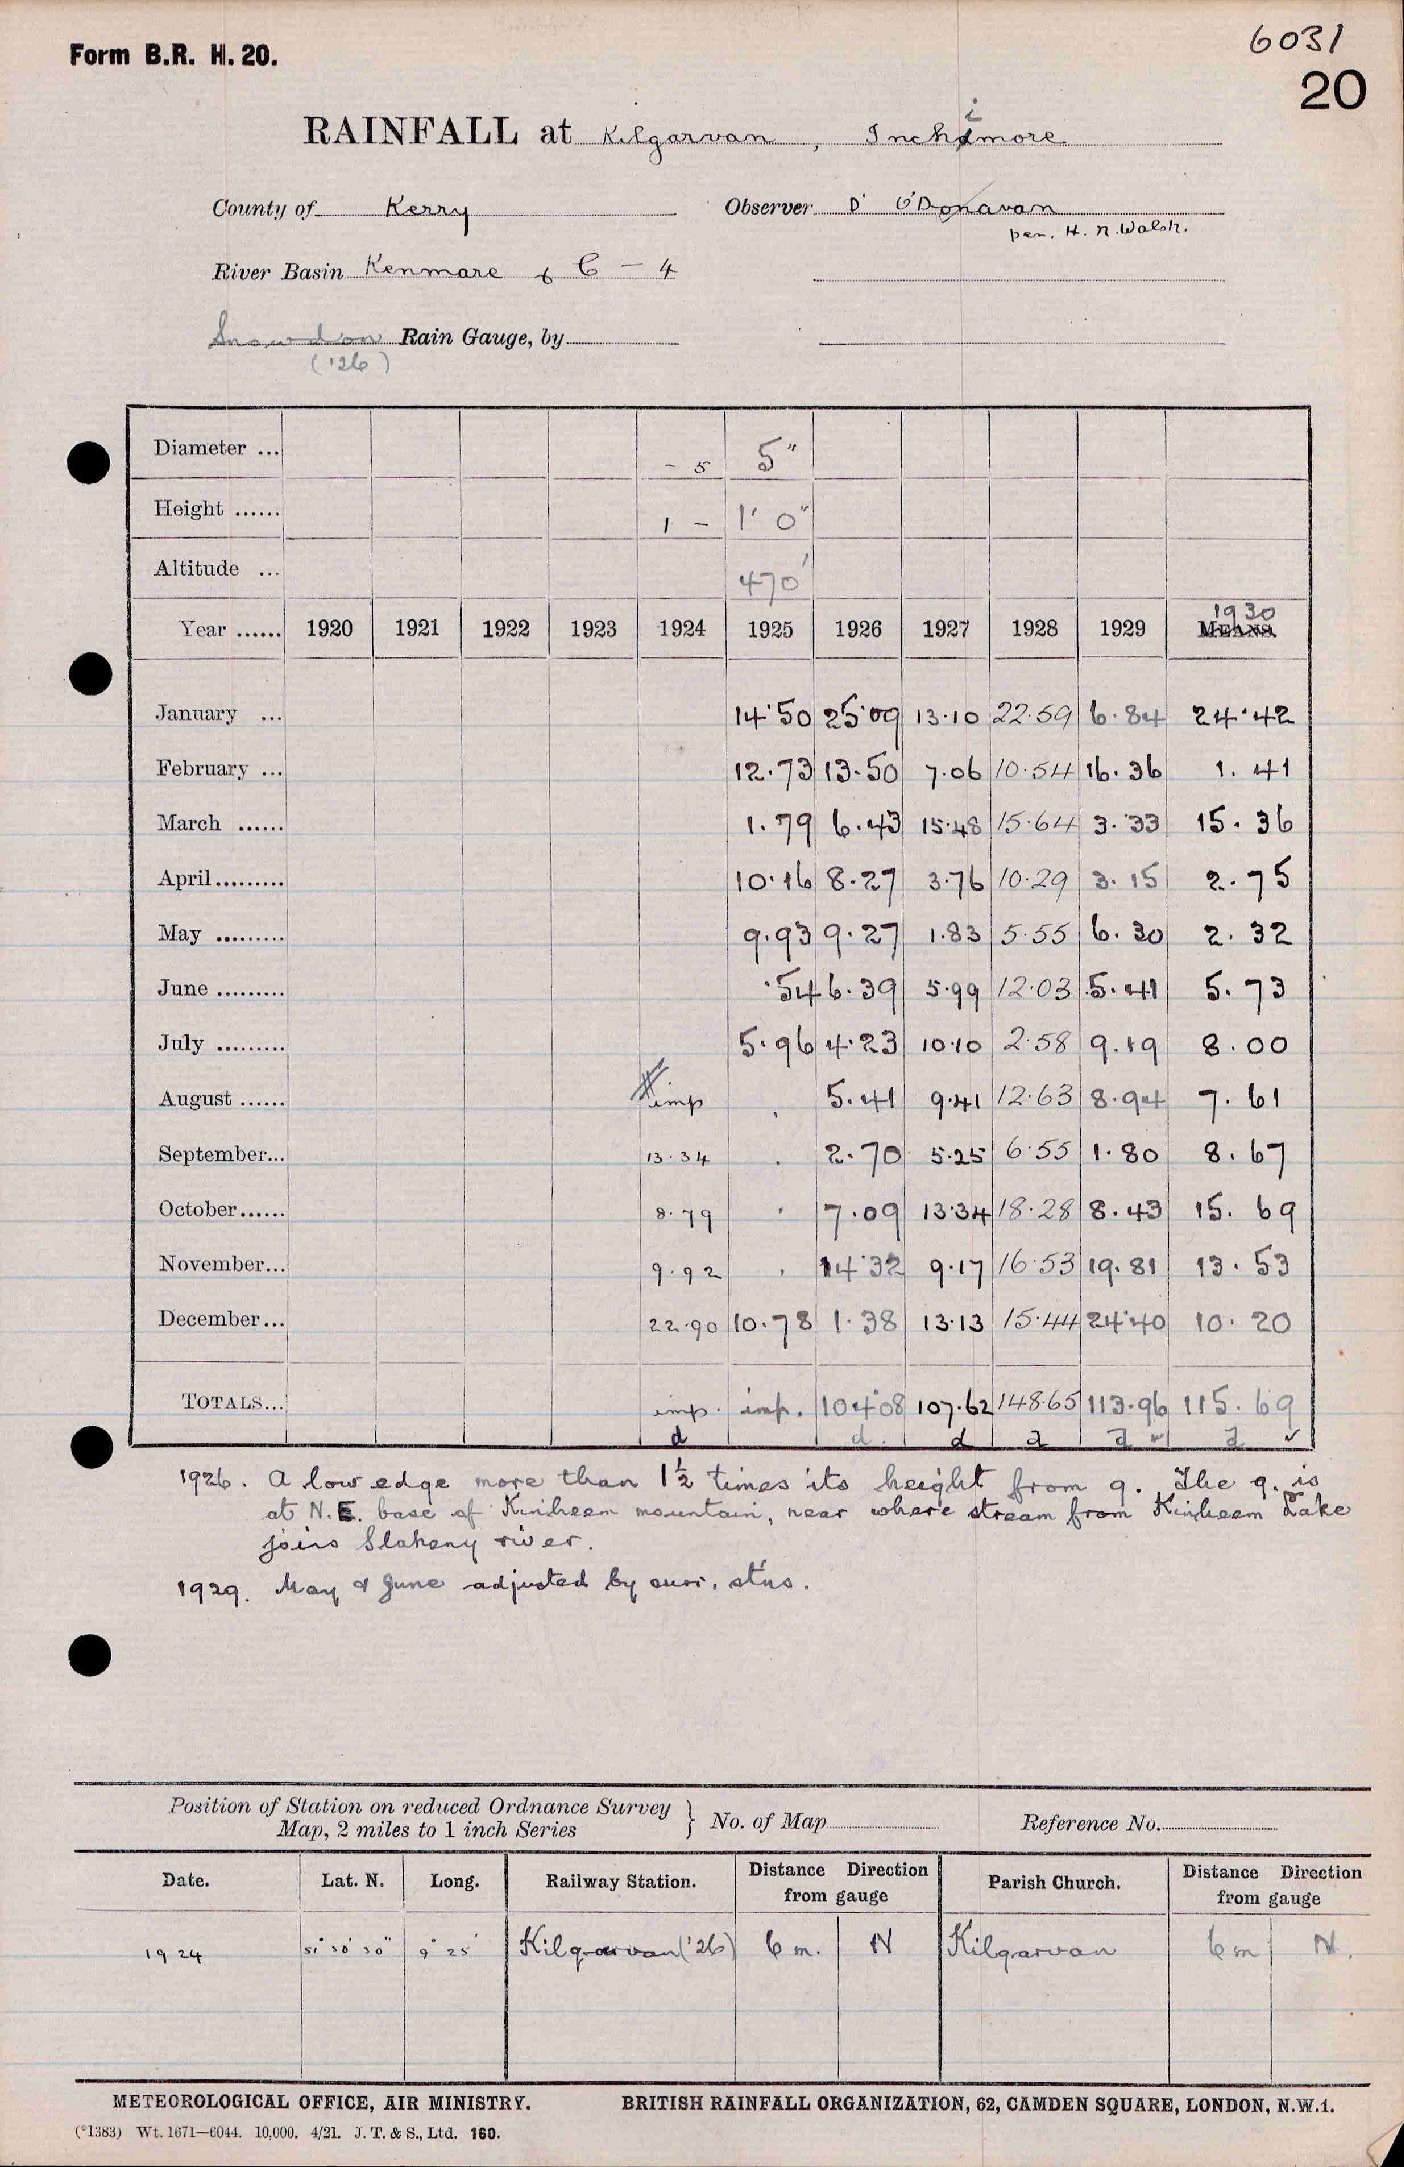 6031
Form B.R. H. 20.
20
RAINFALL at Kilgarvan, Inchimore
County of Kerry Observer D' O'Donavan
per. H. N. Walsh.
River Basin Kenmare & C - 4
Snowdon Rain Gauge, by
('26)
Diameter ... - 5 5"
Height ...... 1 - 1' 0"
Altitude ... 470'
1930
Year ...... 1920 1921 1922 1923 1924 1925 1926 1927 1928 1929 MEANS
January ... 14·50 25·09 13·10 22·59 6·84 24·42
February ... 12·73 13·50 7·06 10·54 16·36 1·41
March ...... 1·79 6·43 15·48 15·64 3·33 15·36
April ......... 10·16 8·27 3·76 10·29 3·15 2·75
May ......... 9·93 9·27 1·83 5·55 6·30 2·32
June ......... ·54 6·39 5·99 12·03 5·41 5·73
July ......... 5·96 4·23 10·10 2·58 9·19 8·00
August ...... imp . 5·41 9·41 12·63 8·94 7·61
September... 13·34 . 2·70 5·25 6·55 1·80 8·67
October...... 8·79 . 7·09 13·34 18·28 8·43 15·69
November... 9·92 . 14·32 9·17 16·53 19·81 13·53
December... 22·90 10·78 1·38 13·13 15·44 24·40 10·20
TOTALS... imp. imp. 104·08 107·62 148·65 113·96 115·69
d d. d
1926. A low edge more than 1½ times its height from g. The g. is
at N.E. base of Kinheem mountain, near where stream from Kinheem Lake
joins Slaheny river.
1929. May & June adjusted by surr. stns.
Position of Station on reduced Ordnance Survey
Map, 2 miles to 1 inch Series } No. of Map Reference No.
Date. Lat. N. Long. Railway Station. Distance Direction from gauge Parish Church. Distance Direction from gauge
1924 51° 50' 30" 9° 25' Kilgarvan ('26) 6 m. N Kilgarvan 6 m N.
METEOROLOGICAL OFFICE, AIR MINISTRY. BRITISH RAINFALL ORGANIZATION, 62, CAMDEN SQUARE, LONDON, N.W.1.
(*1383) Wt. 1671—6044. 10,000. 4/21. J. T. & S., Ltd. 160.